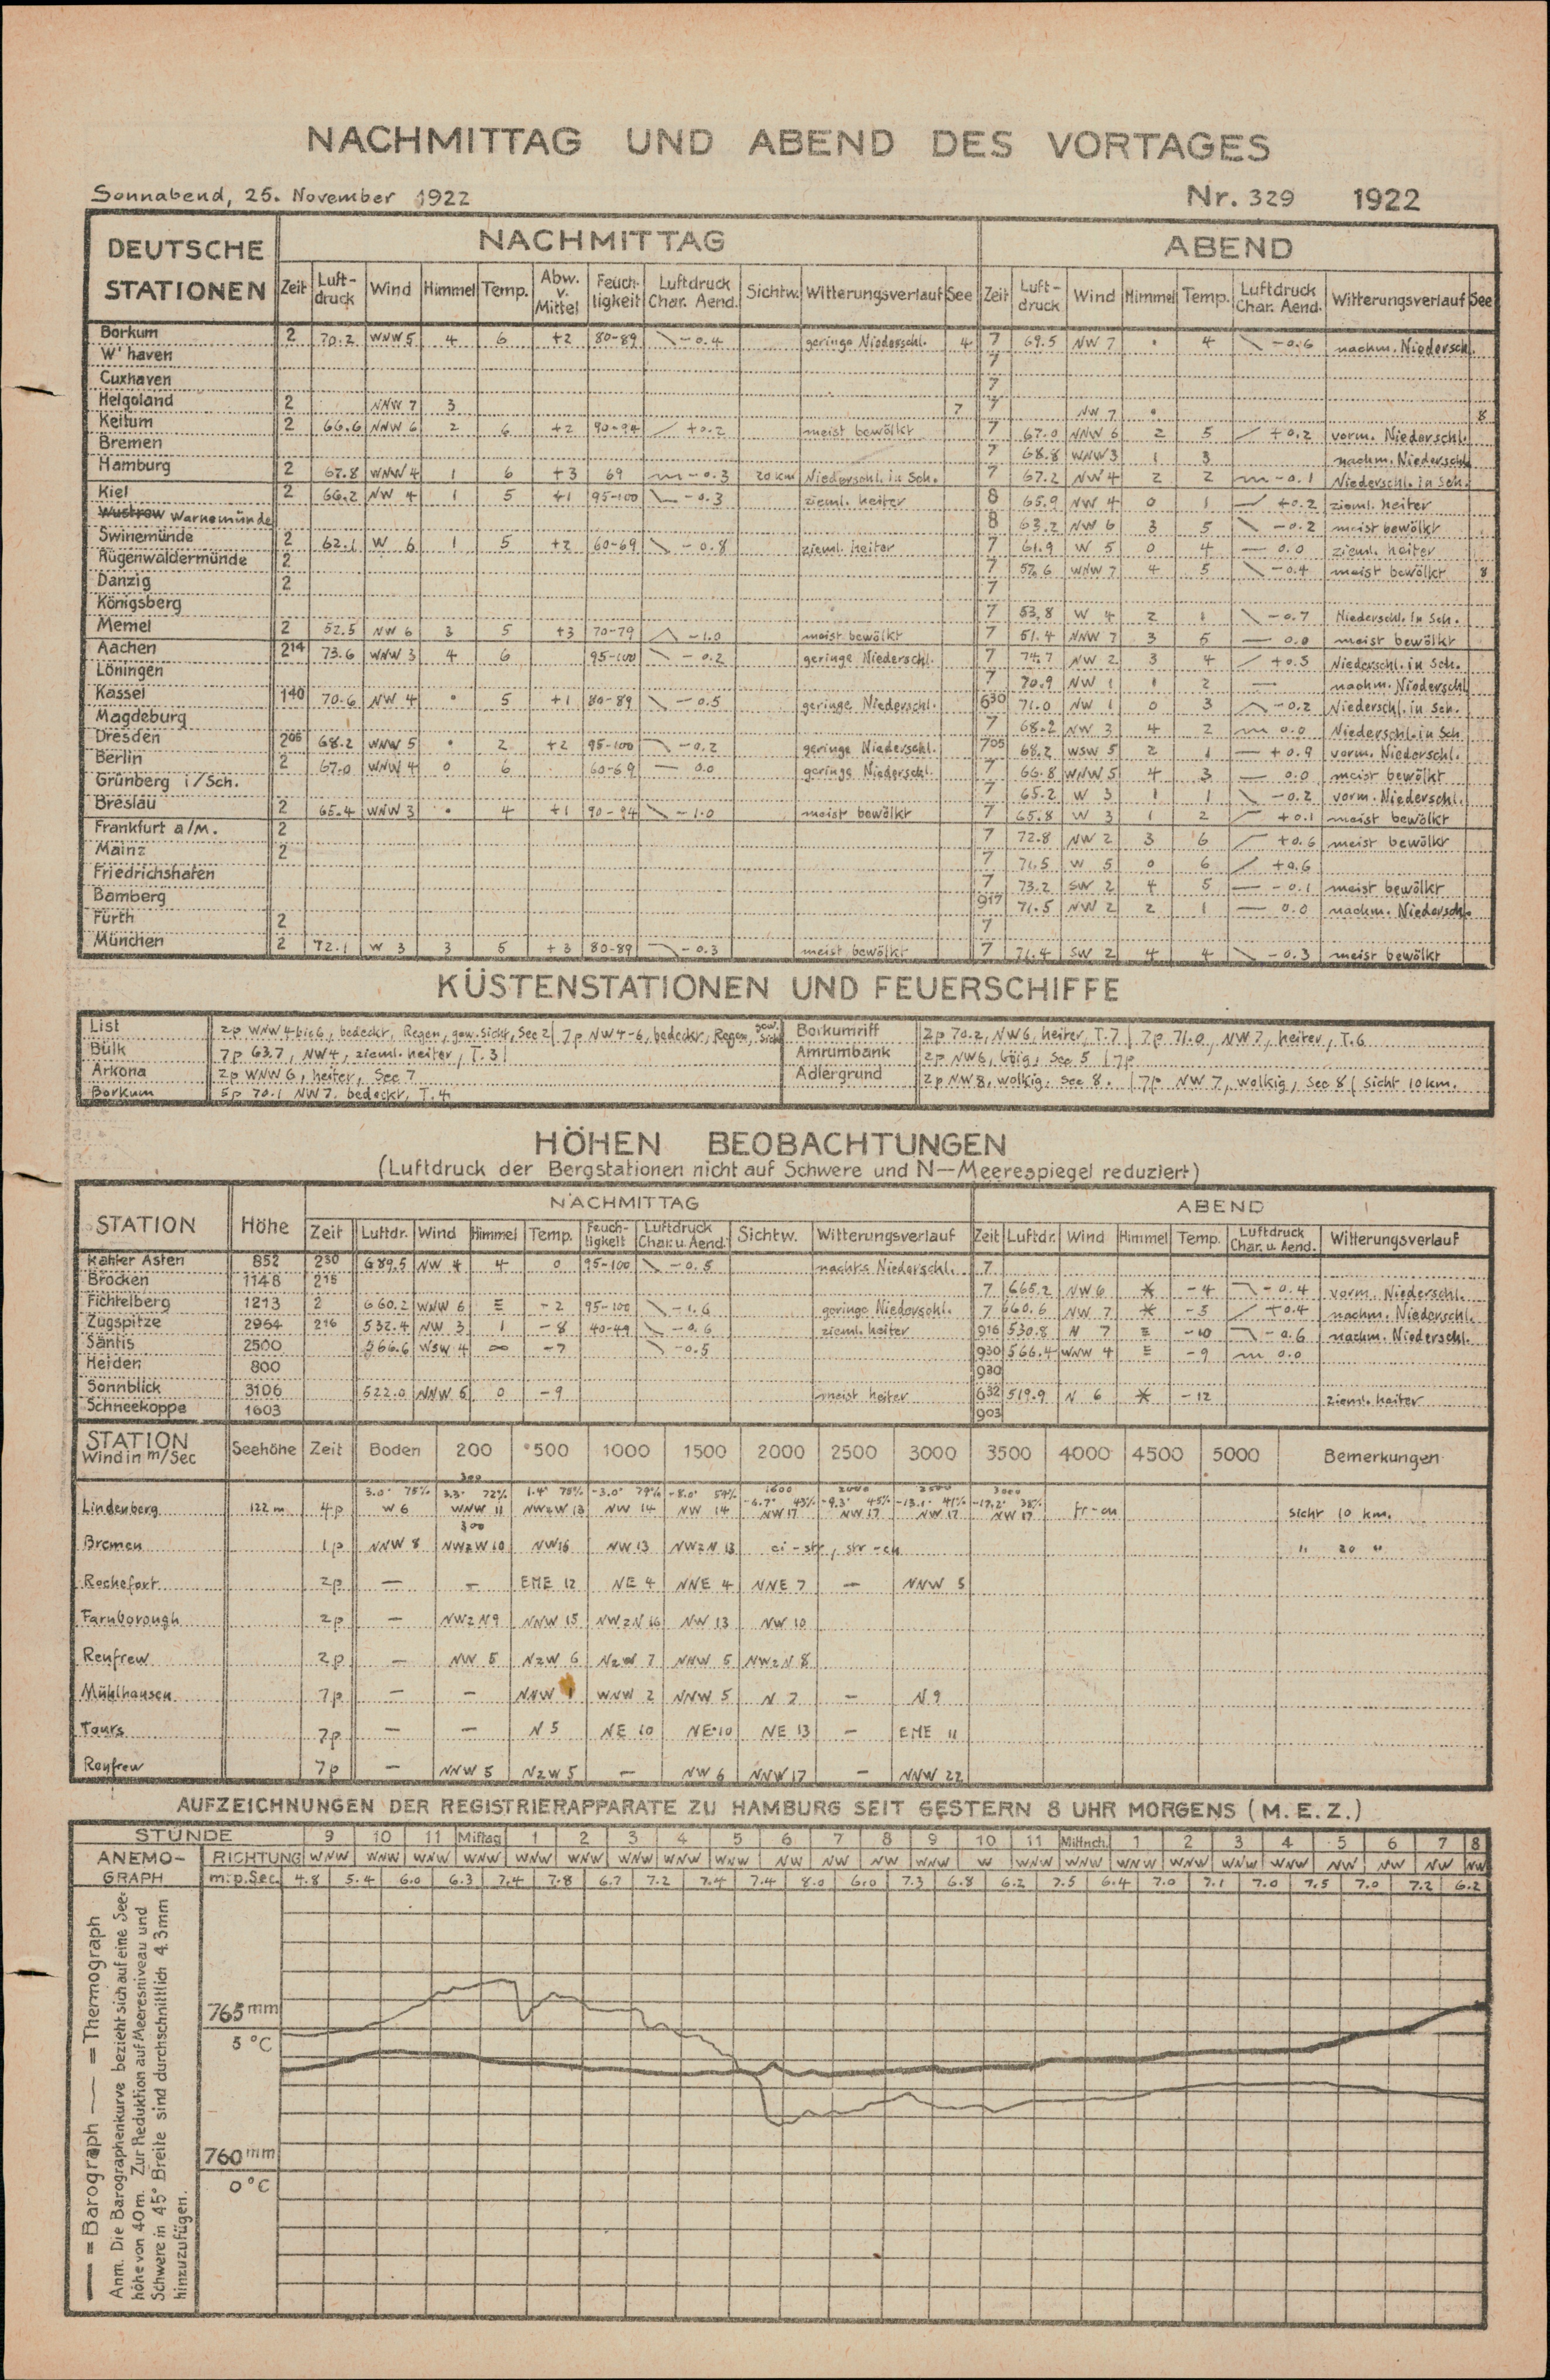 NACHMITTAG UND ABEND DES VORTAGES
Sonnabend, 25. November 1922 Nr. 329 1922
DEUTSCHE STATIONEN NACHMITTAG ABEND
Zeit Luft-druck Wind Himmel Temp. Abw. v. Mittel Feuch-tigkeit Luftdruck Char. Aend. Sichtw. Witterungsverlauf See Zeit Luft-druck Wind Himmel Temp. Luftdruck Char. Aend. Witterungsverlauf See
Borkum 2 70.2 WNW 5 4 6 +2 80-89 -0.4 geringe Niederschl. 4 7 69.5 NW 7 4 -0.6 nachm. Niederschl.
W'haven 7
Cuxhaven 7
Helgoland 2 NNW 7 3 7 7 NW 7 8
Keitum 2 66.6 NNW 6 2 6 +2 90-94 +0.2 meist bewölkt 7 67.0 NNW 6 2 5 +0.2 vorm. Niederschl.
Bremen 7 68.8 WNW 3 1 3 nachm. Niederschl.
Hamburg 2 67.8 WNW 4 1 6 +3 69 -0.3 20 km Niederschl. in Sch. 7 67.2 NW 4 2 2 -0.1 Niederschl. in Sch.
Kiel 2 66.2 NW 4 1 5 +1 95-100 -0.3 zieml. heiter 8 65.9 NW 4 0 1 +0.2 zieml. heiter
Wustrow Warnemünde 8 63.2 NW 6 3 5 -0.2 meist bewölkt
Swinemünde 2 62.1 W 6 1 5 +2 60-69 -0.8 zieml. heiter 7 61.9 W 5 0 4 0.0 zieml. heiter
Rügenwaldermünde 2 7 57.6 WNW 7 4 5 -0.4 meist bewölkt 8
Danzig 2 7
Königsberg 7 53.8 W 4 2 1 -0.7 Niederschl. in Sch.
Memel 2 52.5 NW 6 3 5 +3 70-79 -1.0 meist bewölkt 7 51.4 NNW 7 3 5 0.0 meist bewölkt
Aachen 2 14 73.6 WNW 3 4 6 95-100 -0.2 geringe Niederschl. 7 74.7 NW 2 3 4 +0.5 Niederschl. in Sch.
Löningen 7 70.9 NW 1 1 2 — nachm. Niederschl.
Kassel 1 40 70.6 NW 4 5 +1 80-89 -0.5 geringe Niederschl. 6 30 71.0 NW 1 0 3 -0.2 Niederschl. in Sch.
Magdeburg 7 68.2 NW 3 4 2 0.0 Niederschl. in Sch.
Dresden 2 05 68.2 WNW 5 2 +2 95-100 -0.2 geringe Niederschl. 7 05 68.2 WSW 5 2 1 +0.9 vorm. Niederschl.
Berlin 2 67.0 WNW 4 0 6 60-69 0.0 geringe Niederschl. 7 66.8 WNW 5 4 3 0.0 meist bewölkt
Grünberg i/Sch. 7 65.2 W 3 1 1 -0.2 vorm. Niederschl.
Breslau 2 65.4 WNW 3 4 +1 90-94 -1.0 meist bewölkt 7 65.8 W 3 1 2 +0.1 meist bewölkt
Frankfurt a/M. 2 7 72.8 NW 2 3 6 +0.6 meist bewölkt
Mainz 2 7 71.5 W 5 0 6 +0.6
Friedrichshafen 7 73.2 SW 2 4 5 -0.1 meist bewölkt
Bamberg 9 17 71.5 NW 2 2 1 0.0 nachm. Niederschl.
Fürth 2 7
München 2 72.1 W 3 3 5 +3 80-89 -0.3 meist bewölkt 7 71.4 SW 2 4 4 -0.3 meist bewölkt
KÜSTENSTATIONEN UND FEUERSCHIFFE
List 2p WNW 4 bis 6, bedeckt, Regen, gew. Sicht, See 2 | 7p NW 4-6, bedeckt, Regen, gew. Sicht Borkumriff 2p 70.2, NW 6, heiter, T. 7 | 7p 71.0, NW 7, heiter, T. 6
Bülk 7p 63.7, NW 4, zieml. heiter, T. 3 Amrumbank 2p NW 6, böig, See 5 | 7p
Arkona 2p WNW 6, heiter, See 7 Adlergrund 2p NW 8, wolkig, See 8. | 7p NW 7, wolkig, See 8 Sicht 10 km.
Borkum 5p 70.1 NW 7, bedeckt, T. 4
HÖHEN BEOBACHTUNGEN
(Luftdruck der Bergstationen nicht auf Schwere und N—Meerespiegel reduziert)
STATION Höhe NACHMITTAG ABEND
Zeit Luftdr. Wind Himmel Temp. Feuch-tigkeit Luftdruck Char. u. Aend. Sichtw. Witterungsverlauf Zeit Luftdr. Wind Himmel Temp. Luftdruck Char. u. Aend. Witterungsverlauf
Kahler Asten 852 2 30 689.5 NW 4 4 0 95-100 -0.5 nachts Niederschl. 7
Brocken 1148 2 15 7 665.2 NW 6 * -4 -0.4 vorm. Niederschl.
Fichtelberg 1213 2 660.2 WNW 6 ≡ -2 95-100 -1.6 geringe Niederschl. 7 660.6 NW 7 * -5 +0.4 nachm. Niederschl.
Zugspitze 2964 2 16 532.4 NW 3 1 -8 40-49 -0.6 zieml. heiter 9 16 530.8 N 7 ≡ -10 -0.6 nachm. Niederschl.
Säntis 2500 566.6 WSW 4 ∞ -7 -0.5 9 30 566.4 WNW 4 ≡ -9 0.0
Heiden 800 9 30
Sonnblick 3106 522.0 NNW 5 0 -9 meist heiter 6 32 519.9 N 6 * -12 zieml. heiter
Schneekoppe 1603 9 03
STATION Wind in m/Sec Seehöhe Zeit Boden 200 500 1000 1500 2000 2500 3000 3500 4000 4500 5000 Bemerkungen
300 1600 2000 2500 3000
3.0° 75% 3.3° 72% 1.4° 75% -3.0° 79% -8.0° 54% -6.7° 43% -9.3° 45% -13.1° 41% -17.2° 38%
Lindenberg 122 m 4p W 6 WNW 11 NWzW 13 NW 14 NW 14 NW 17 NW 17 NW 17 NW 17 fr-cu Sicht 10 km.
300
Bremen 1p NNW 8 NWzW 10 NW 16 NW 13 NWzN 13 ci-str, str-cu " 20 "
Rochefort 2p — — ENE 12 NE 4 NNE 4 NNE 7 — NNW 5
Farnborough 2p — NWzN 9 NNW 15 NWzN 16 NW 13 NW 10
Renfrew 2p — NW 5 NzW 6 NzW 7 NNW 5 NWzN 8
Mühlhausen 7p — — NNW 1 WNW 2 NNW 5 N 2 — N 9
Tours 7p — — N 5 NE 10 NE 10 NE 13 — ENE 11
Renfrew 7p — NNW 5 NzW 5 — NW 6 NNW 17 — NNW 22
AUFZEICHNUNGEN DER REGISTRIERAPPARATE ZU HAMBURG SEIT GESTERN 8 UHR MORGENS (M.E.Z.)
STUNDE 9 10 11 Mittag 1 2 3 4 5 6 7 8 9 10 11 Mittnch. 1 2 3 4 5 6 7 8
ANEMO-GRAPH RICHTUNG WNW WNW WNW WNW WNW WNW WNW WNW WNW NW NW NW WNW W WNW WNW WNW WNW WNW WNW NW NW NW NW
m. p. Sec. 4.8 5.4 6.0 6.3 7.4 7.8 6.7 7.2 7.4 7.4 8.0 6.0 7.3 6.8 6.2 7.5 6.4 7.0 7.1 7.0 7.5 7.0 7.2 6.2
765 mm
5 °C
760 mm
0 °C
— = Barograph — = Thermograph
Anm. Die Barographenkurve bezieht sich auf eine See-
höhe von 40 m. Zur Reduktion auf Meeresniveau und
Schwere in 45° Breite sind durchschnittlich 4.3 mm
hinzuzufügen.